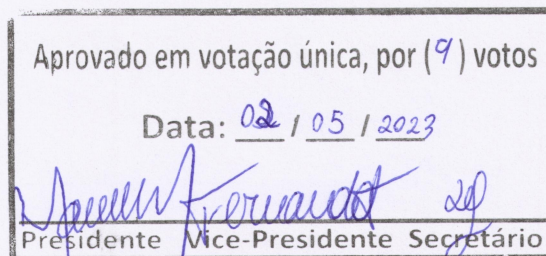 Aprovado em votação única, por (9) votos
Data: 02 / 05 / 2023
Fernandes
Presidente Vice-Presidente Secretário